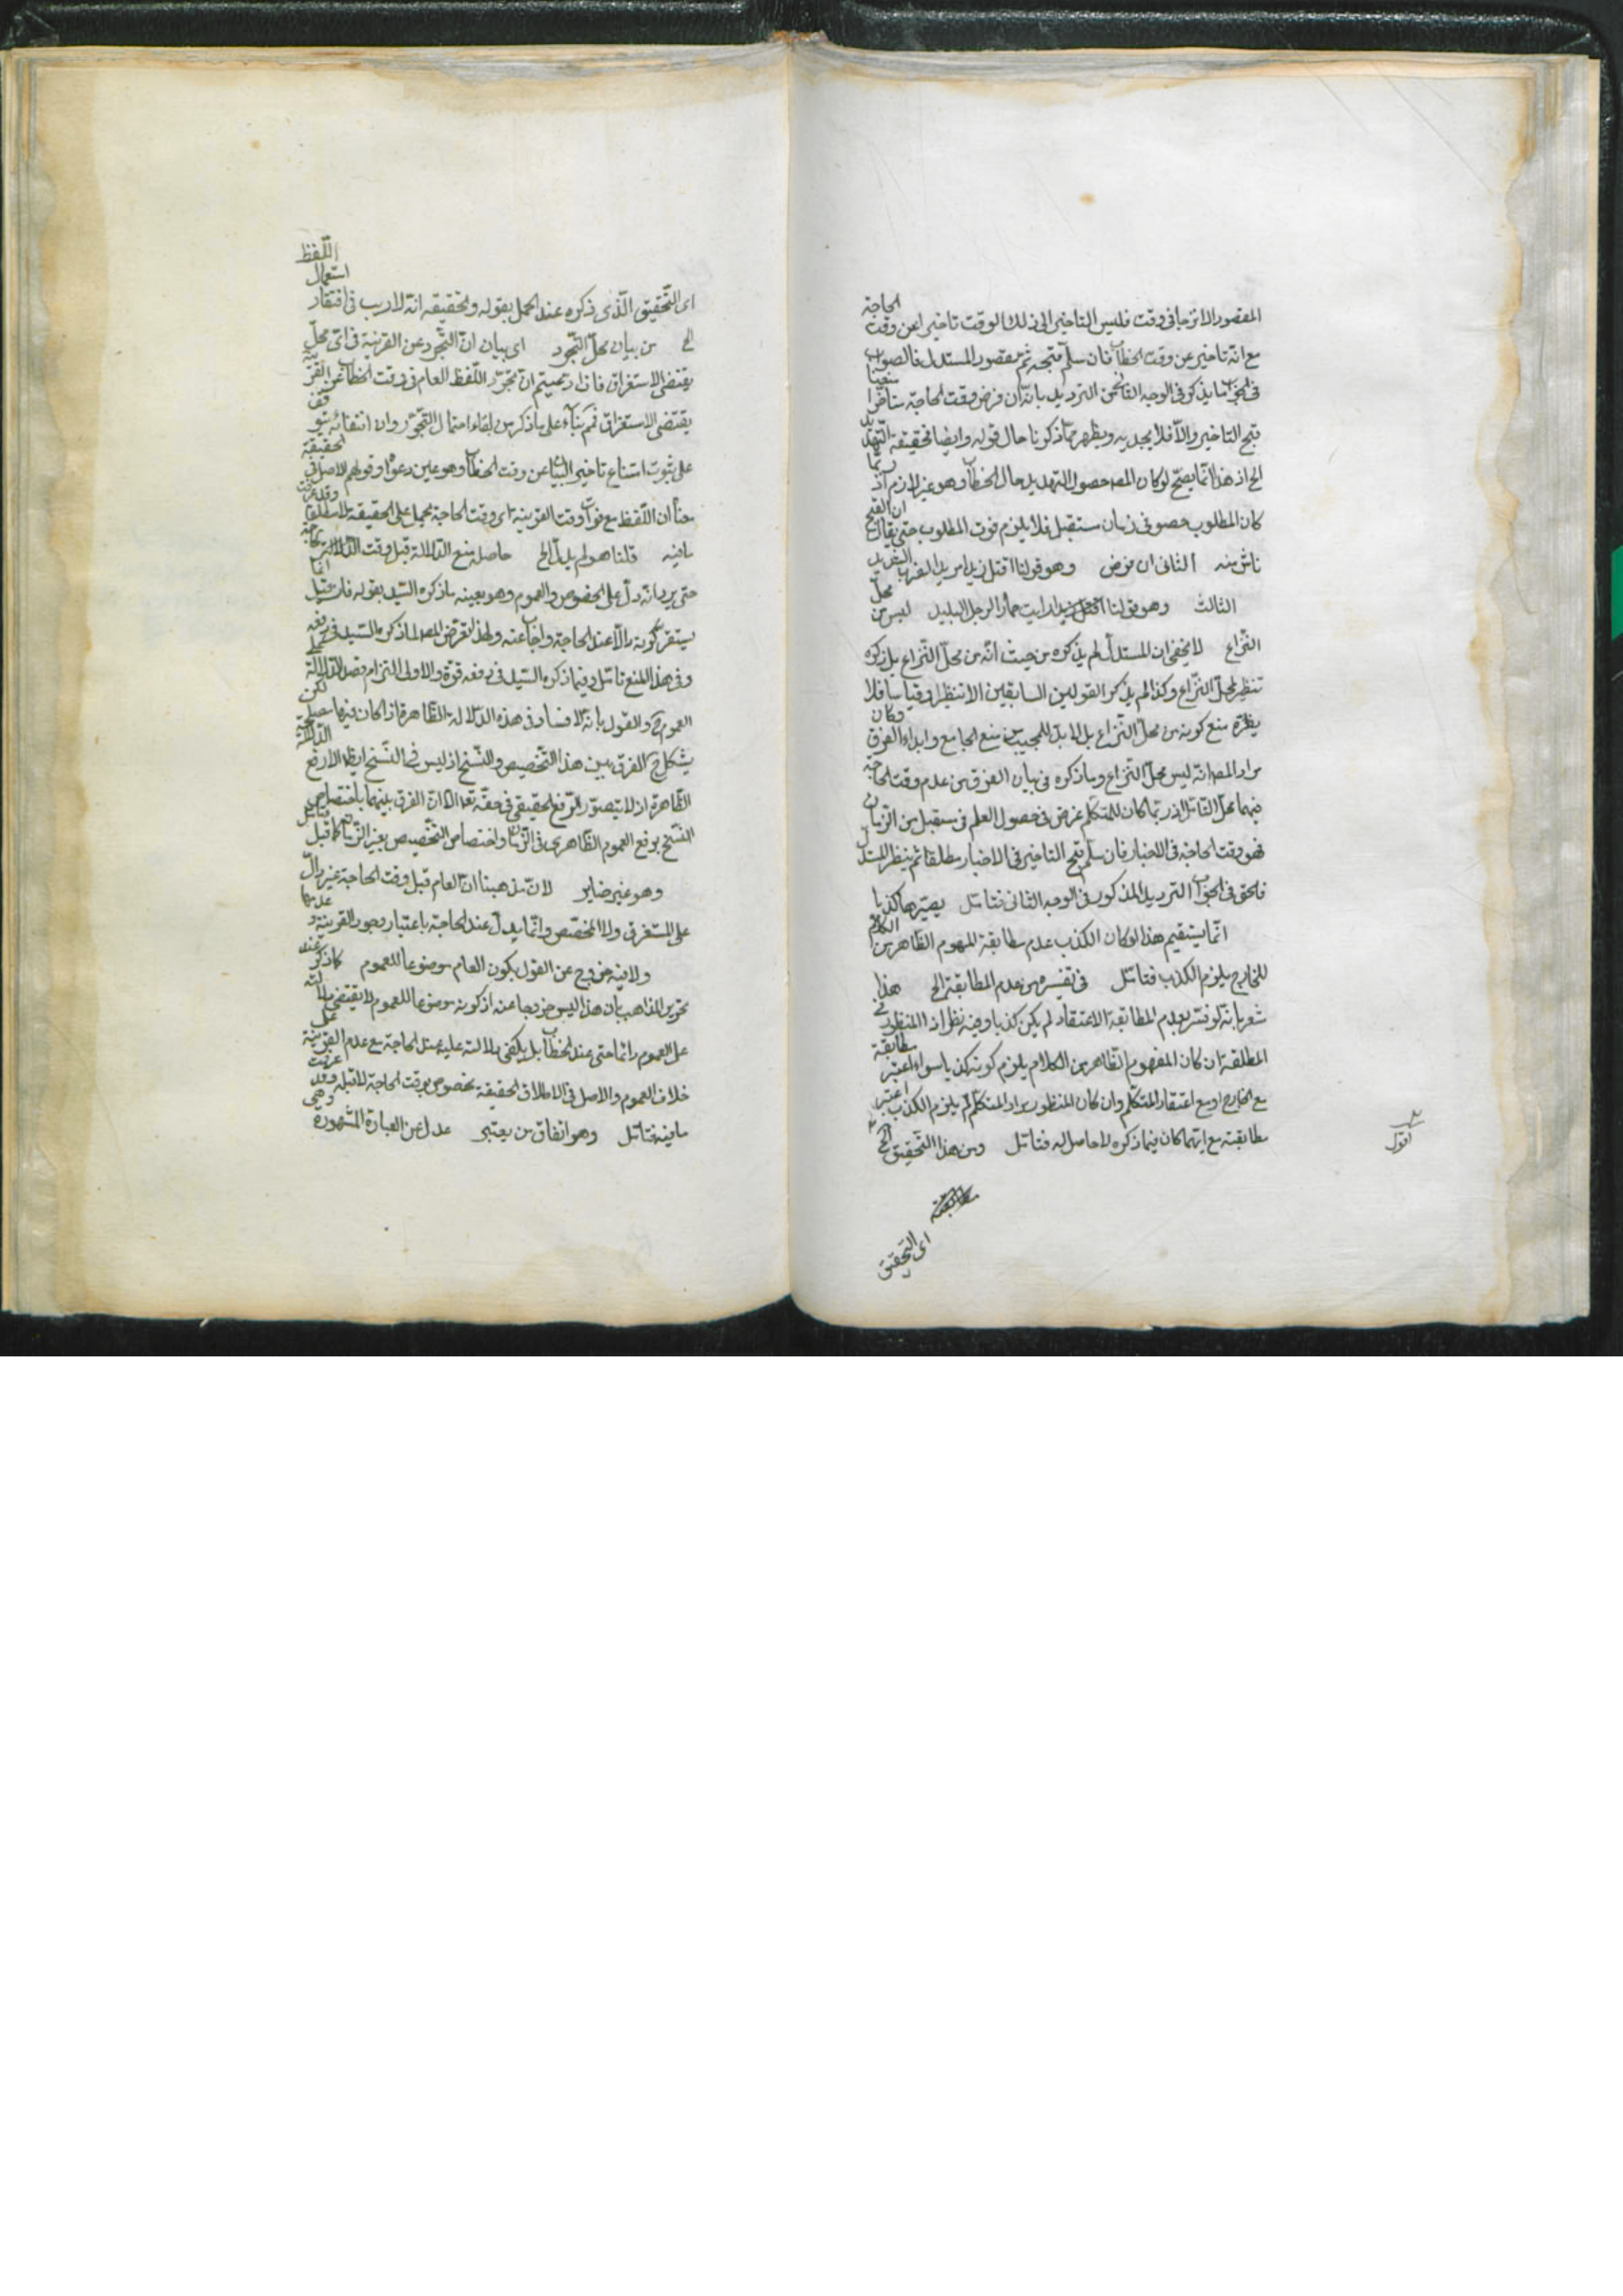 المقصود الانزجار في وقت فليس التاخير الى ذلك الوقت تاخيرا عن وقت الحاجة
مع انه تاخير عن وقت الخطاب فان سلم قبحه تم مقصود المستدل فالصواب
في الجواب ما يذكر في الوجه الثاني من الترديد بانه ان فرض وقت الحاجة متاخرا منعنا
قبح التاخير والا فلا يجديه ويظهر مما ذكرنا حال قوله وايضا فحقيقة التهديد
الخ اذ هذا انما يصح لو كان المص حصول التهديد حال الخطاب وهو غير لازم اذ ربما
كان المطلوب حصوله في زمان مستقبل فلا يلزم فوت المطلوب حتى يقال ان القبح
ناش منه الثاني ان نفرض وهو قولنا اقتل زيدا مريدا اضربه الضرب الشديد
الثالث وهو قولنا رايت حمارا الرجل البليد ليس من محل
النزاع لا يخفى ان المستدل لم يذكره من حيث انه من محل النزاع بل ذكره
تنظيرا لمحل النزاع وكذا لم يذكر القولين السابقين الا تنظيرا وقياسا فلا
يضره منع كونه من محل النزاع بل لا بد للمجيب من منع الجامع وابداء الفرق وكان
مراد المص انه ليس محل النزاع وما ذكره في بيان الفرق من عدم وقت الحاجة
فيهما محل التامل اذ ربما كان للمتكلم غرض في حصول العلم في مستقبل من الزمان
فهو وقت الحاجة في الاخبار فان سلم قبح التاخير في الاخبار مطلقا تم تنظير المستدل
فالحق في الجواب الترديد المذكور في الوجه الثاني فتامل يصيرها كذبا
انما يستقيم هذا لو كان الكذب عدم مطابقة المفهوم الظاهر من الكلام
للخارج يلزم الكذب فتامل في تفسيره من عدم المطابقة الخ هذا
مشعر بانه لو فسر بعدم المطابقة الاعتقاد لم يكن كذبا وفيه نظر اذ المنظور في
المطابقة ان كان المفهوم الظاهر من الكلام يلزم كونه كذبا سواء اعتبر مطابقة
مع الخارج او مع اعتقاد المتكلم وان كان المنظور مراد المتكلم لم يلزم الكذب اعتبر
مطابقته مع ايهما كان فيما ذكره لا حاصل له فتامل ومن هذا التحقيق الخ
اقول
اى التحقيق
اى التحقيق الذى ذكره عند الحمل بقوله وتحقيقه انه لا ريب في افتقار استعمال اللفظ
الخ من بيان محل التجرد اى بيان ان التجرد عن القرينة في اى محل
يقتضي الاستغراق فاذا ادعيتم ان مجرد اللفظ العام في وقت الخطاب عن القرينة
يقتضي الاستغراق فهم بناء على ما ذكر من بقاء احتمال التجوز وان انتفائه يتوقف
على ثبوت امتناع تاخير البيان عن وقت الخطاب وهو عين دعواه وقولهم الاصل في الحقيقة
معناه ان اللفظ مع فوات وقت القرينة اى وقت الحاجة يحمل على الحقيقة لا مطلقا وقد عرفت
ما فيه قلنا هو لم يدل الخ حاصله منع الدلالة قبل وقت الحاجة
حتى يرد انه دل على الخصوص والعموم وهو بعينه ما ذكره السيد بقوله فان قيل انما
يستقر كونه دالا عند الحاجة واجاب عنه ولهذا تعرض المص لما ذكره السيد في دفعه
وفي هذا المنع تامل وفيما ذكره السيد في دفعه قوة والاولى التزام قصد الدلالة على
العموم والقول بانه لا فساد في هذه الدلالة الظاهرة اذا كان فيها مصلحة لكن
يشكل الفرق بين هذا التخصيص والنسخ اذ ليس في النسخ ايضا الا رفع الدلالة
الظاهرة اذ لا يتصور الرفع الحقيقي في حقه تعالى الا ان الفرق بينهما باختصاص
النسخ برفع العموم الظاهري في الزمان واختصاص التخصيص بغير الزمان كما قيل فتامل
وهو غير ضاير لان مذهبنا ان العام قبل وقت الحاجة غير دال
على المستغرق ولا المخصص وانما يدل عند الحاجة باعتبار وجود القرينة وعدمها
ولا فيه خروج عن القول بكون العام موضوعا للعموم كما ذكره عند
تحرير المذاهب بان هذا ليس خروجا عنه اذ كونه موضوعا للعموم لا يقتضي دلالته
على العموم دائما حتى عند الخطاب بل يكفي دلالته عليه عند الحاجة مع عدم القرينة على
خلاف العموم والاصل في الاطلاق الحقيقة مخصوص بوقت الحاجة لا قبله وقد عرفت
ما فيه فتامل وهو اتفاق من يعتبر عدل عن العبارة المشهورة وهي